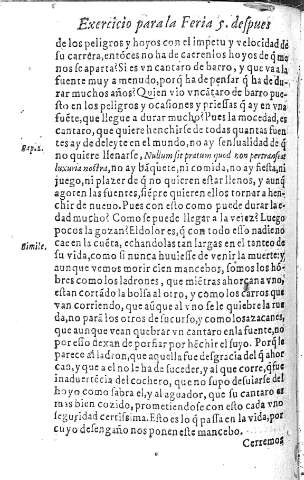 Exercicio para la Feria 5. despues
de los peligros y hoyos con el impetu y velocidad de
su carréra, entóces no ha de caer en los hoyos de q̃ me
nos se aparta? Si es vn cantaro de barro, y que va a la
fuente muy a menudo, por q̃ ha de pensar q̃ ha de du-
rar muchos años? Quien vio vn cátaro de barro pue-
sto en los peligros y ocasiones y priessas q̃ ay en vna
fuẽte, que llegue a durar mucho? Pues la mocedad, es
cantaro, que quiere henchirse de todas quantas fuen
tes ay de deleyte en el mundo, no ay sensualidad de q̃
Sap. 2.
no quiere llenarse, Nullum sit pratum quod non pertranseat
luxuria nostra, no ay bãquete, ni comida, no ay fiesta, ni
juego, ni plazer de q̃ no quieren estar llenos, y aunq̃
agoten las fuentes, siẽpre quieren ellos tornar a hen-
chir de nuevo. Pues con esto como puede durar la e-
dad mucho? Como se puede llegar a la vejez? Luego
pocos la gozan? El dolor es, q̃ con todo esso nadie no
Simile.
cae en la cuẽta, echandolas tan largas en el tanteo de
su vida, como si nunca huuiesse de venir la muerte: y
aunque vemos morir cien mancebos, somos los hõ-
bres como los ladrones, que miẽtras ahorcan a vno,
estan cortãdo la bolsa al otro, y como los carros que
van corriendo, que aũque al vno se le quiebre la rue
da, no pará los otros de su curso, y como los azacanes,
que aunque vean quebrar vn cantaro en la fuente, no
por esso dexan de porfiar por hẽchir el suyo. Porq̃ le
parece al ladron, que aquella fue desgracia del q̃ ahor
can, y que a el no le ha de suceder, y al que corre, q̃ fue
inaduertẽcia del cochero, que no supo desuiarse del
hoyo como sabra el, y al aguador, que su cantaro es
mas bien cozido, prometiendose con esto cada vno
seguridad certissima. Esto es lo q̃ passa en la vida, por
cuyo desengaño nos ponen este mancebo.
Cerremos